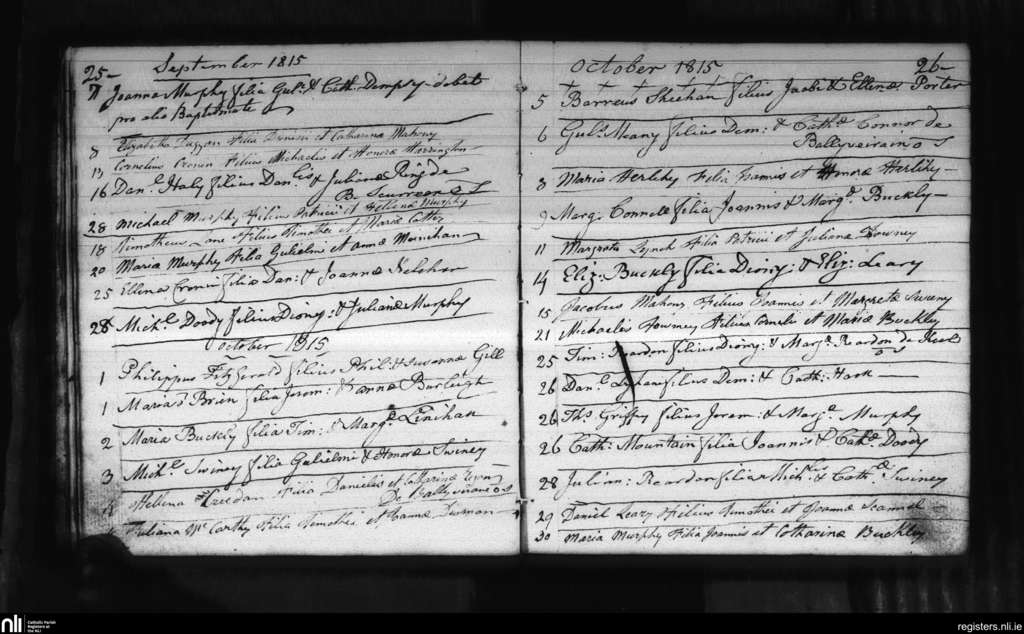 25- September 1815
7 Joanna Murphy filia Gul: & Cath: Dempsy - debet
pro alio Baptismate
8 Elizabetha Duggan filia Dionisii et Catharinæ Mahony
13 Cornelius Cronin filius Michaelis et Honoræ Harrington
16 Danl. Haly filius Danlis & Julianæ Ring de
B. S
28 Michael Murphy Filius Patricii et Hellenæ Murphy
18 Timotheus Filius Timothei et Mariæ
20 Maria Murphy filia Gulielmi et Annæ Moinihan
25 Ellenæ Cronin filia Dan: & Joannæ Kelehar
28 Michl. Doody filius Diony: & Julianæ Murphy
October 1815
1 Philippus FitzGerald filius Phil: & Susannæ Gill
1 Maria O Brien filia Jerom: & Annæ Burleigh
2 Maria Buckly filia Tim: & Marga. Linihan
3 Michl. Swiney filia Gulielmi & Honoræ Swiney
Helena Creedan Filia Danielis et Catharinæ
De Ballyvirane o S
Juliana McCarthy Filia Timothei et Joannæ
October 1815 26-
5 Barreus Sheehan filius Jacobi & Ellenæ Porter
6 Gul: Meany filius Dem: & Cathæ Connor de
Ballyveirain o S
8 Maria Herlihy Filia Joannis et Honoræ Herlihy -
9 Marg: Connell filia Joannis & Marg: Buckly -
11 Margreta Lynch Filia Patricii et Julianæ Downey
14 Eliz: Buckly filia Diony: & Eliz: Leary
15 Jacobus Mahony Filius Joannis et Margretæ Sweeny
21 Michaeles Downey Filius Cornelii et Mariæ Buckley
25 Tim: Reardon filius Diony: & Marg: Reardon de
26 Danl. filius Dem: & Cath: Hark -
26 Ths. Griffy filius Jerem: & Marga. Murphy
26 Cath: Mountain filia Joannis & Cathæ Doody
28 Julian: Reardon filia Michlis & Cathæ Swiney
29 Daniel Leary Filius Timothei et Joannæ Scannel -
30 Maria Murphy Filia Joannis et Catharinæ Buckley
nli
Catholic Parish
Registers at
the NLI
registers.nli.ie